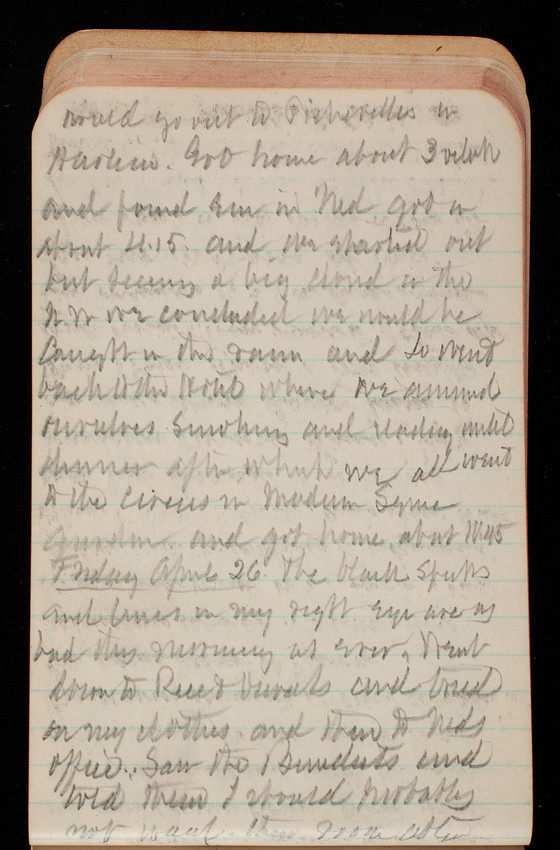 would go out to
Harlem. Got home about 3 oclock
and found Em in Ned got in
about 4.15. and we started out
but seeing a big cloud in the
N W we concluded we would be
Caught in the rain and so went
back to the Hotel where we amused
ourselves smoking and reading until
dinner after which we all went
to the Circus in Madison Square
Garden. and got home about 10.45
Friday April 26 The black specks
and lines in my right eye are as
bad this morning as ever. Went
down to Reed and tried
on my clothes. and then to Neds
office. Saw the Benedicts and
told them I should probably
not want their room